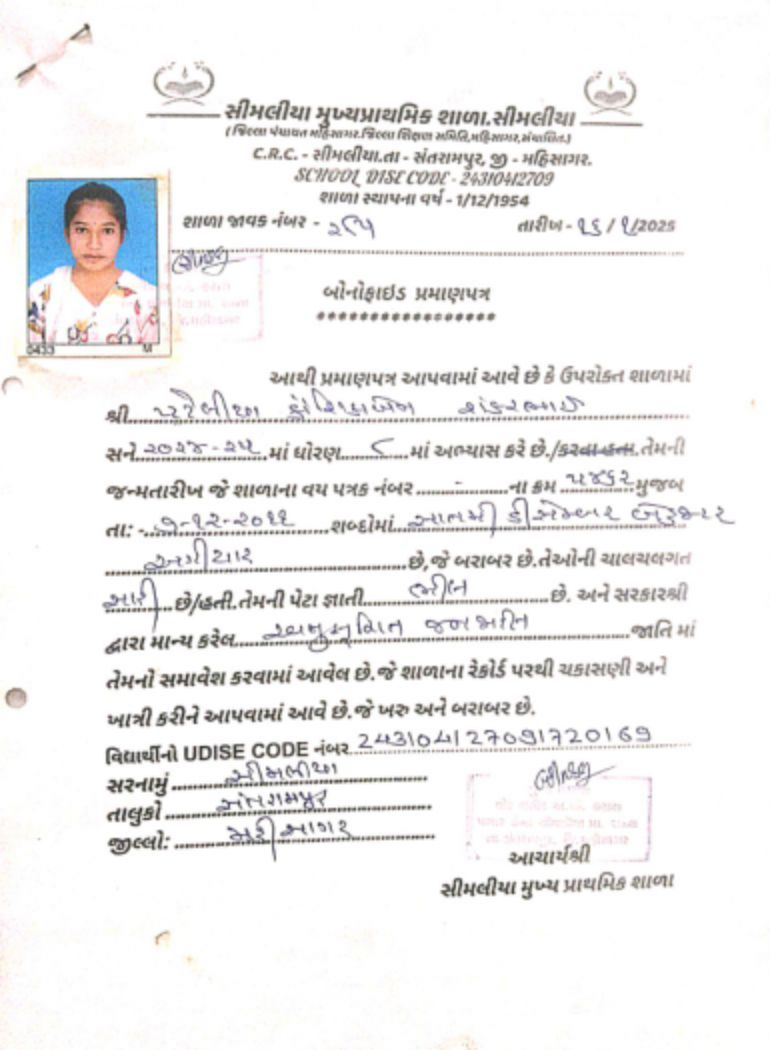 સીમલીયા મુખ્યપ્રાથમિક શાળા.સીમલીયા
(જિલ્લા પંચાયત મહિસાગર.જિલ્લા શિક્ષણ સમિતિ,મહિસાગર,સંચાલિત.)
C.R.C. - સીમલીયા.તા - સંતરામપુર, જી - મહિસાગર.
SCHOOL DISE CODE - 24310412709
શાળા સ્થાપના વર્ષ - 1/12/1954
શાળા જાવક નંબર - ૨૯૫ તારીખ - ૧૬ / ૧/2025
બોનોફાઇડ પ્રમાણપત્ર
*****************
0433 M
આથી પ્રમાણપત્ર આપવામાં આવે છે કે ઉપરોક્ત શાળામાં
શ્રી પટેલીયા શંકરભાઈ
સને ૨૦૨૪-૨૫ માં ધોરણ ૮ માં અભ્યાસ કરે છે./કરતા હતા.તેમની
જન્મતારીખ જે શાળાના વય પત્રક નંબર - ના ક્રમ ૫૪૬૨ મુજબ
તા: -૭-૧૨-૨૦૧૧ શબ્દોમાં સાતમી ડીસેમ્બર બે હજાર
અગીયાર છે,જે બરાબર છે.તેઓની ચાલચલગત
સારી છે/હતી.તેમની પેટા જ્ઞાતી ભીલ છે. અને સરકારશ્રી
દ્વારા માન્ય કરેલ અનુસુચિત જનજાતિ જાતિ માં
તેમનો સમાવેશ કરવામાં આવેલ છે.જે શાળાના રેકોર્ડ પરથી ચકાસણી અને
ખાત્રી કરીને આપવામાં આવે છે.જે ખરુ અને બરાબર છે.
વિદ્યાર્થીનો UDISE CODE નંબર 243104127091720169
સરનામું સીમલીયા
તાલુકો સંતરામપુર
જીલ્લો: મહીસાગર
આચાર્યશ્રી
સીમલીયા મુખ્ય પ્રાથમિક શાળા